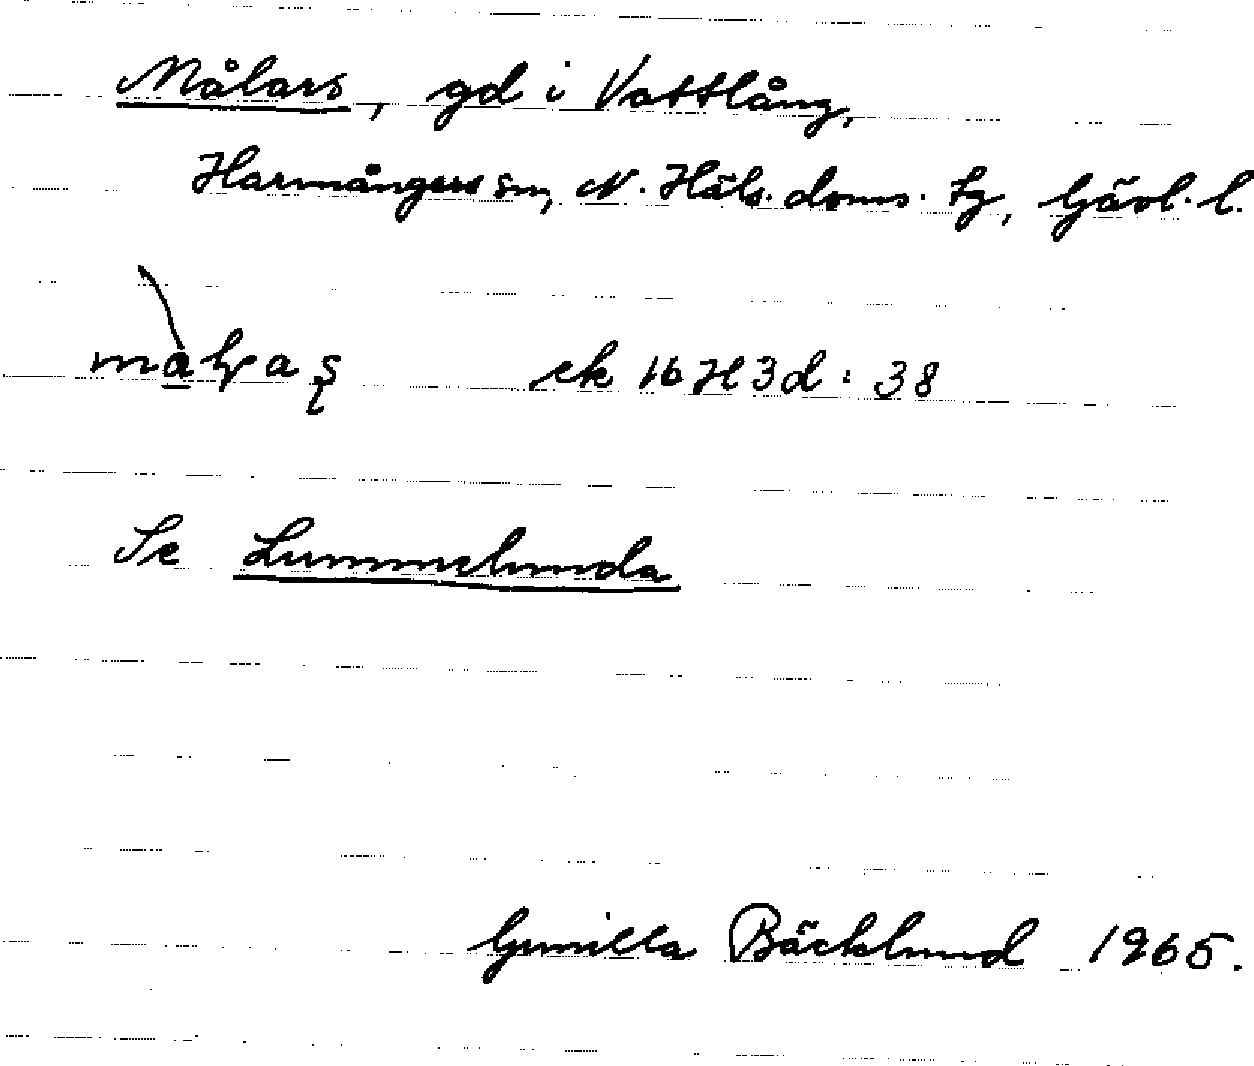 Målars, gd i Vattlång,
Harmångers sn, N. Häls. doms. tg, Gävl. l.
ek 16 H 3d : 38
Se Lummelunda
Gunilla Bäcklund 1965.